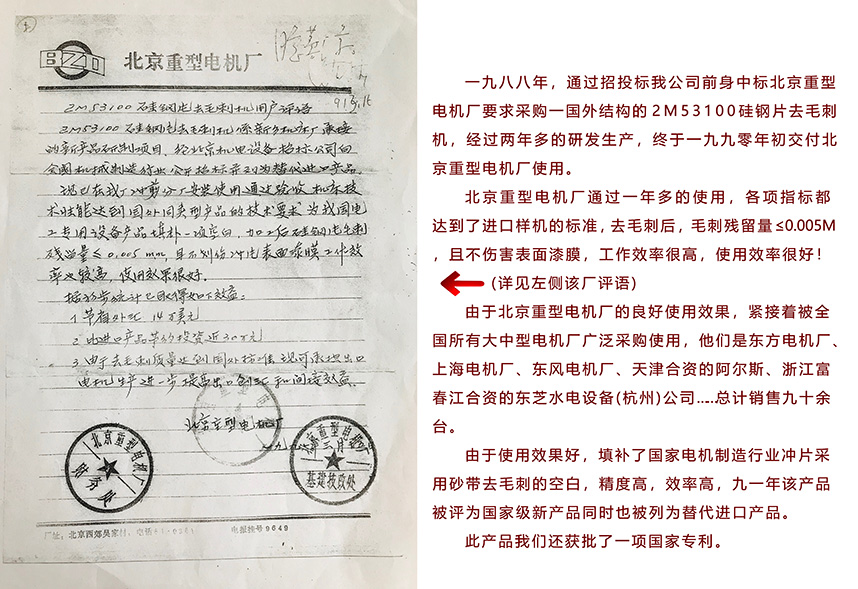 BZD 北京重型电机厂
2M53100硅钢片去毛刺机用户评语
2M53100硅钢片去毛刺机系新乡机床厂承接
的新产品研制项目,经北京机电设备招标公司向
全国机械制造行业公开招标并列为替代进口产品。
现已在我厂冲剪分厂安装使用通过验收,机床技
术性能达到国外同类型产品的技术要求为我国电
工专用设备产品填补一项空白,加工后硅钢片毛刺
残留量≤0.005mm,且不划伤冲片表面漆膜工作效
率也较高,使用效果很好。
据初步统计已取得如下效益:
1 节省外汇 14万美元
2 比进口产品节约投资近30万元
3 由于去毛刺质量达到国外标准,现可承担出口
电机生产进一步提高出口创汇和间接效益。
北京重型电机厂
北京重型电机厂
财务处
北京重型电机厂
三月
基建技改处
厂址:北京西郊吴家村
电报挂号9649
一九八八年,通过招投标我公司前身中标北京重型
电机厂要求采购一国外结构的2M53100硅钢片去毛刺
机,经过两年多的研发生产,终于一九九零年初交付北
京重型电机厂使用。
北京重型电机厂通过一年多的使用,各项指标都
达到了进口样机的标准,去毛刺后,毛刺残留量≤0.005M
,且不伤害表面漆膜,工作效率很高,使用效率很好!
(详见左侧该厂评语)
由于北京重型电机厂的良好使用效果,紧接着被全
国所有大中型电机厂广泛采购使用,他们是东方电机厂、
上海电机厂、东风电机厂、天津合资的阿尔斯、浙江富
春江合资的东芝水电设备(杭州)公司.....总计销售九十余
台。
由于使用效果好,填补了国家电机制造行业冲片采
用砂带去毛刺的空白,精度高,效率高,九一年该产品
被评为国家级新产品同时也被列为替代进口产品。
此产品我们还获批了一项国家专利。